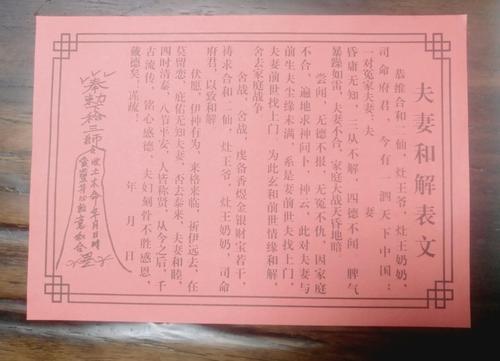 夫妻和解表文
恭维合和二仙，灶王爷，灶王奶奶，
司命府君，今有一泗天下中国：
一对冤家夫妻：夫 妻
昏庸无知，三从不解，四德不闻 脾气
暴躁如雷，夫妻不合，家庭大战天昏地暗
尝间，无德不报，无冤不仇，因家庭
不合，遍地求神问卜，神云，此对夫妻与
前生夫尘缘未满，系是妻前世夫找上门，
夫妻前世找上门，为此玄和前世情缘和解，
舍去家庭战争
舍战，舍战，虔备香煜金银财宝若干，
祷求合和二仙，灶王爷，灶王奶奶，司命
府君，以致和解
伏愿，伊神有为，来格来临，祈伊远去，在
莫留恋，庇佑无知夫妻，否去泰来，夫妻和睦，
四时清泰，八节平安，人皆称贤，从今之后，千
古流传，铭心感德，夫妇刻骨不胜感恩，
戴德矣，谨疏：
年 月 日
奉勅
三师